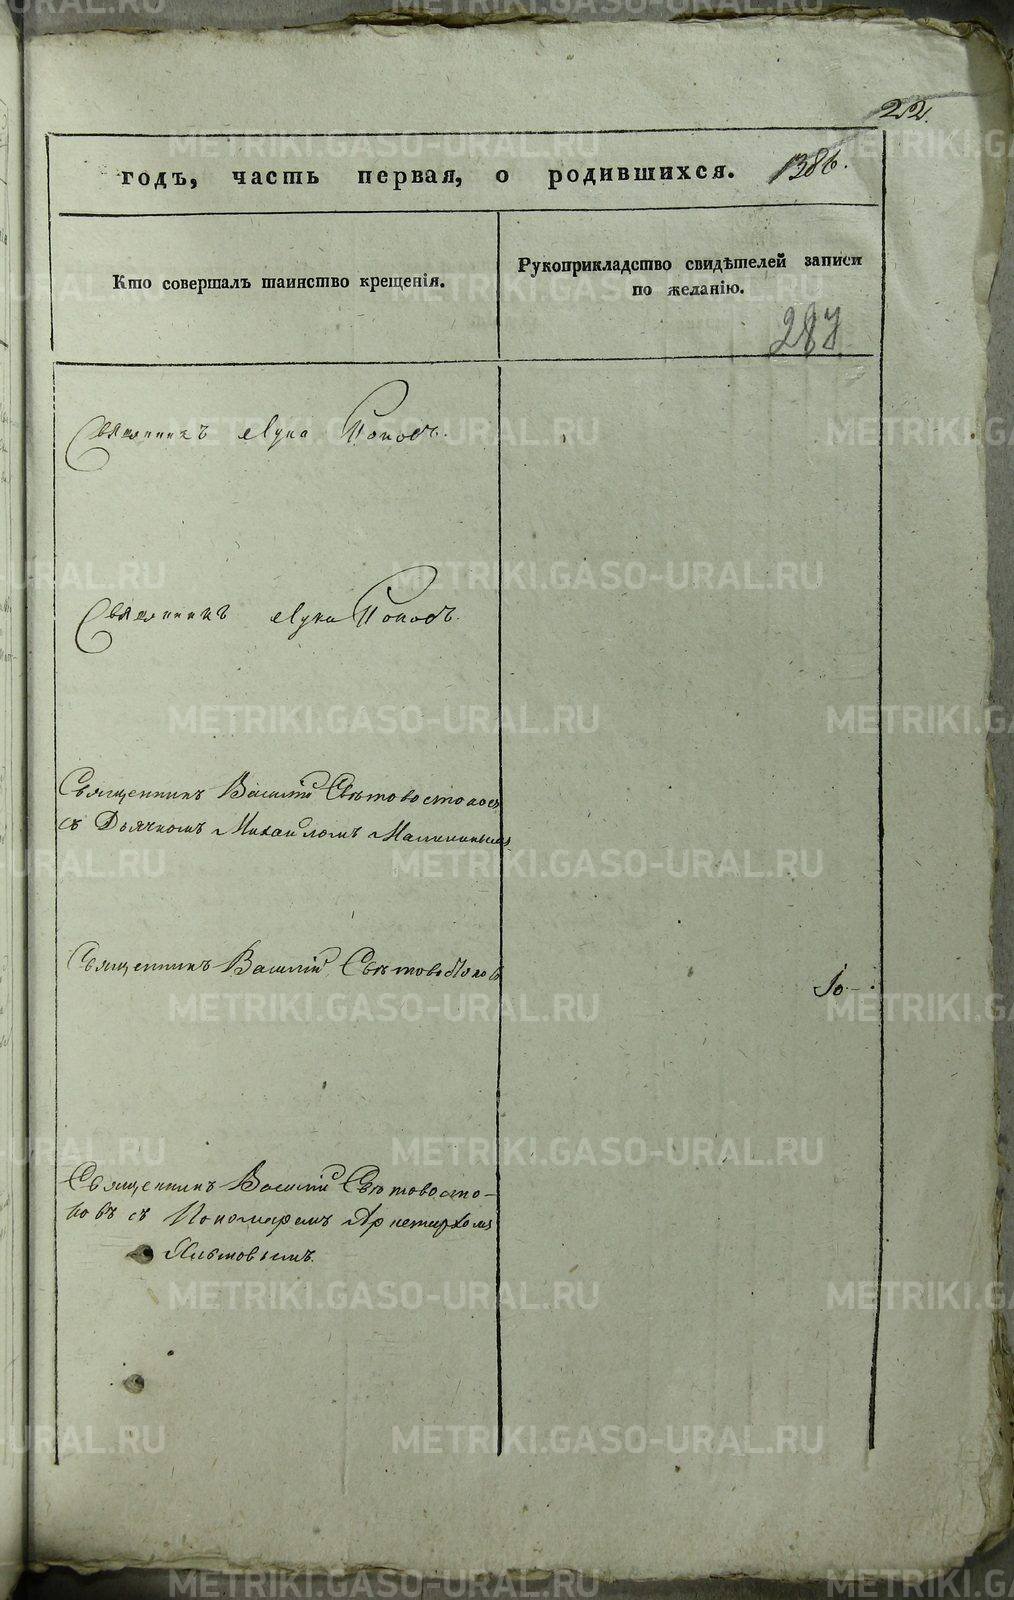 22.
годъ, часть первая, о родившихся. 1386.
Кто совершалъ таинство крещенія.
Рукоприкладство свидѣтелей записи
по желанію.
287
Священникъ Лука Поповъ.
Священникъ Лука Поповъ.
Священникъ Василій Свѣтовостоковъ
съ Дьячкомъ Михаиломъ
Священникъ Василій Свѣтовостоковъ
Священникъ Василій Свѣтовосто-
ковъ съ Пономаремъ
METRIKI.GASO-URAL.RU